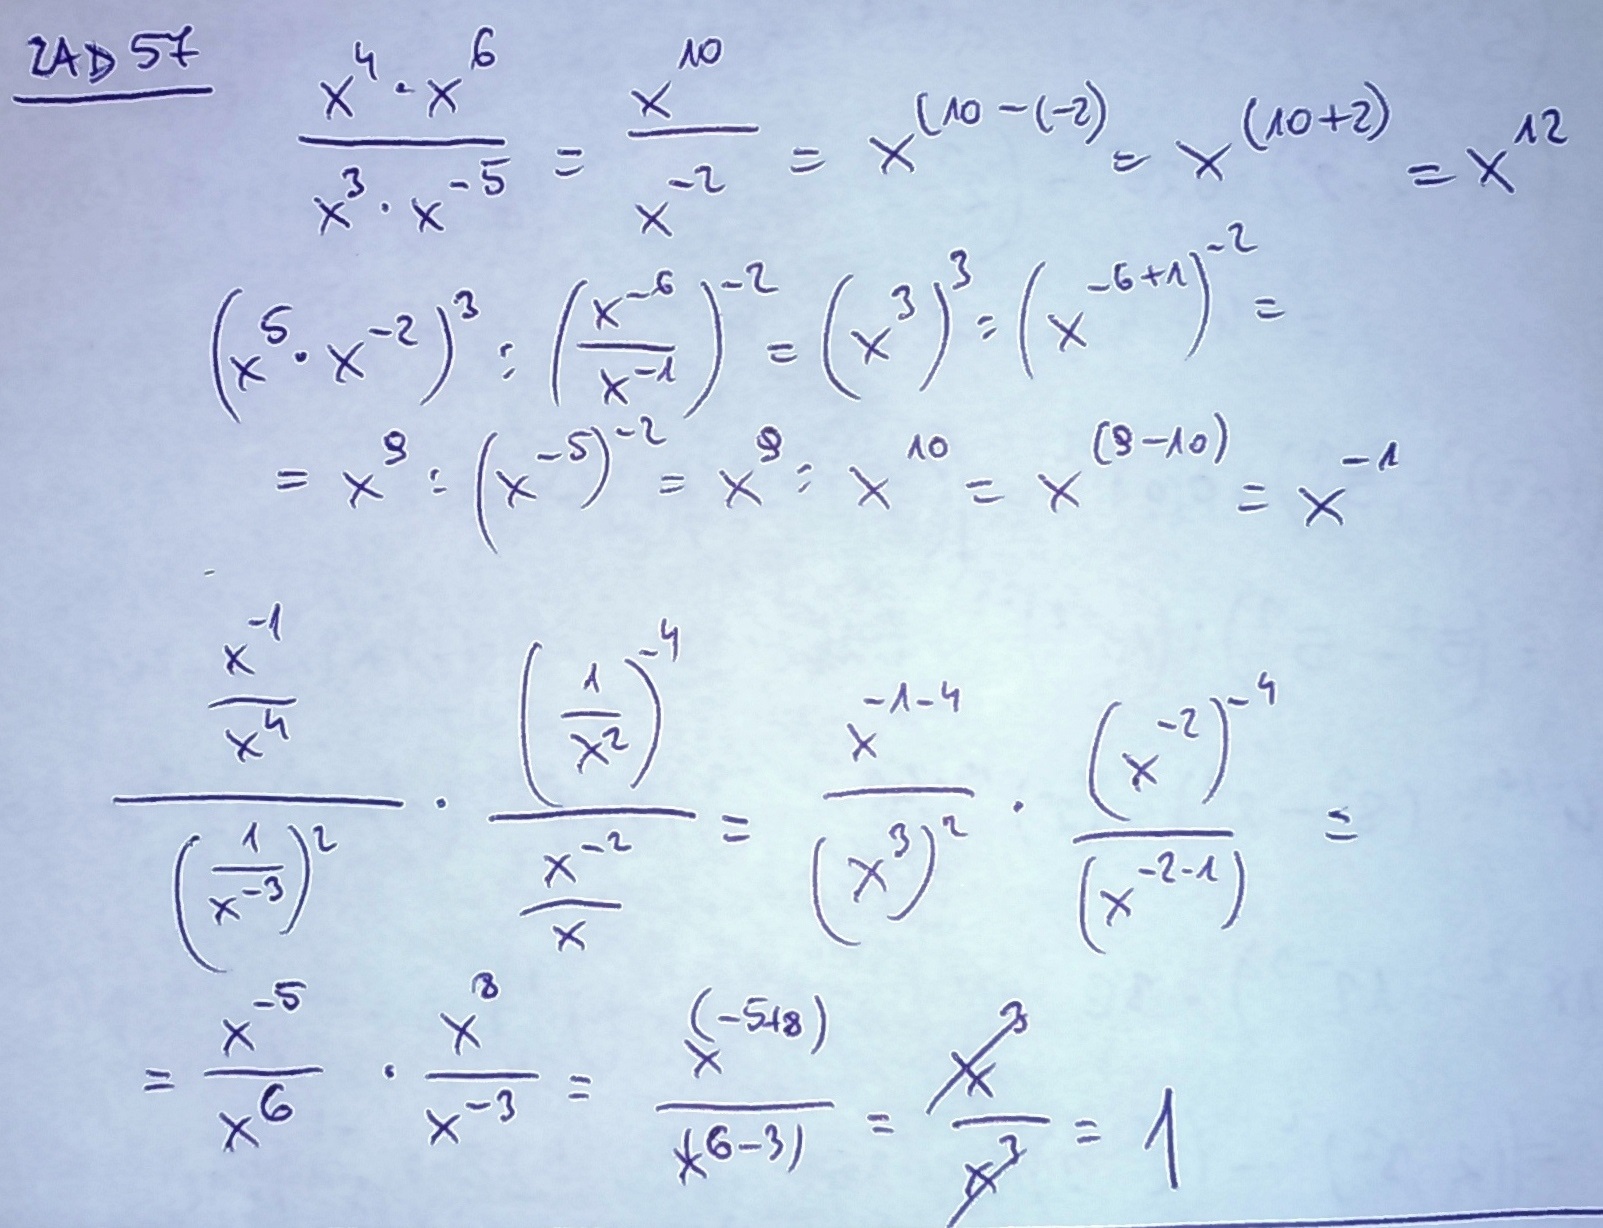 ZAD 57
\frac{x^4 \cdot x^6}{x^3 \cdot x^{-5}} = \frac{x^{10}}{x^{-2}} = x^{(10-(-2)} = x^{(10+2)} = x^{12}
(x^5 \cdot x^{-2})^3 : \left(\frac{x^{-6}}{x^{-1}}\right)^{-2} = (x^3)^3 : (x^{-6+1})^{-2} =
= x^9 : (x^{-5})^{-2} = x^9 : x^{10} = x^{(9-10)} = x^{-1}
\frac{\frac{x^{-1}}{x^4}}{\left(\frac{1}{x^{-3}}\right)^2} \cdot \frac{\left(\frac{1}{x^2}\right)^{-4}}{\frac{x^{-2}}{x}} = \frac{x^{-1-4}}{(x^3)^2} \cdot \frac{(x^{-2})^{-4}}{(x^{-2-1})} =
= \frac{x^{-5}}{x^6} \cdot \frac{x^8}{x^{-3}} = \frac{x^{(-5+8)}}{x^{(6-3)}} = \frac{x^3}{x^3} = 1